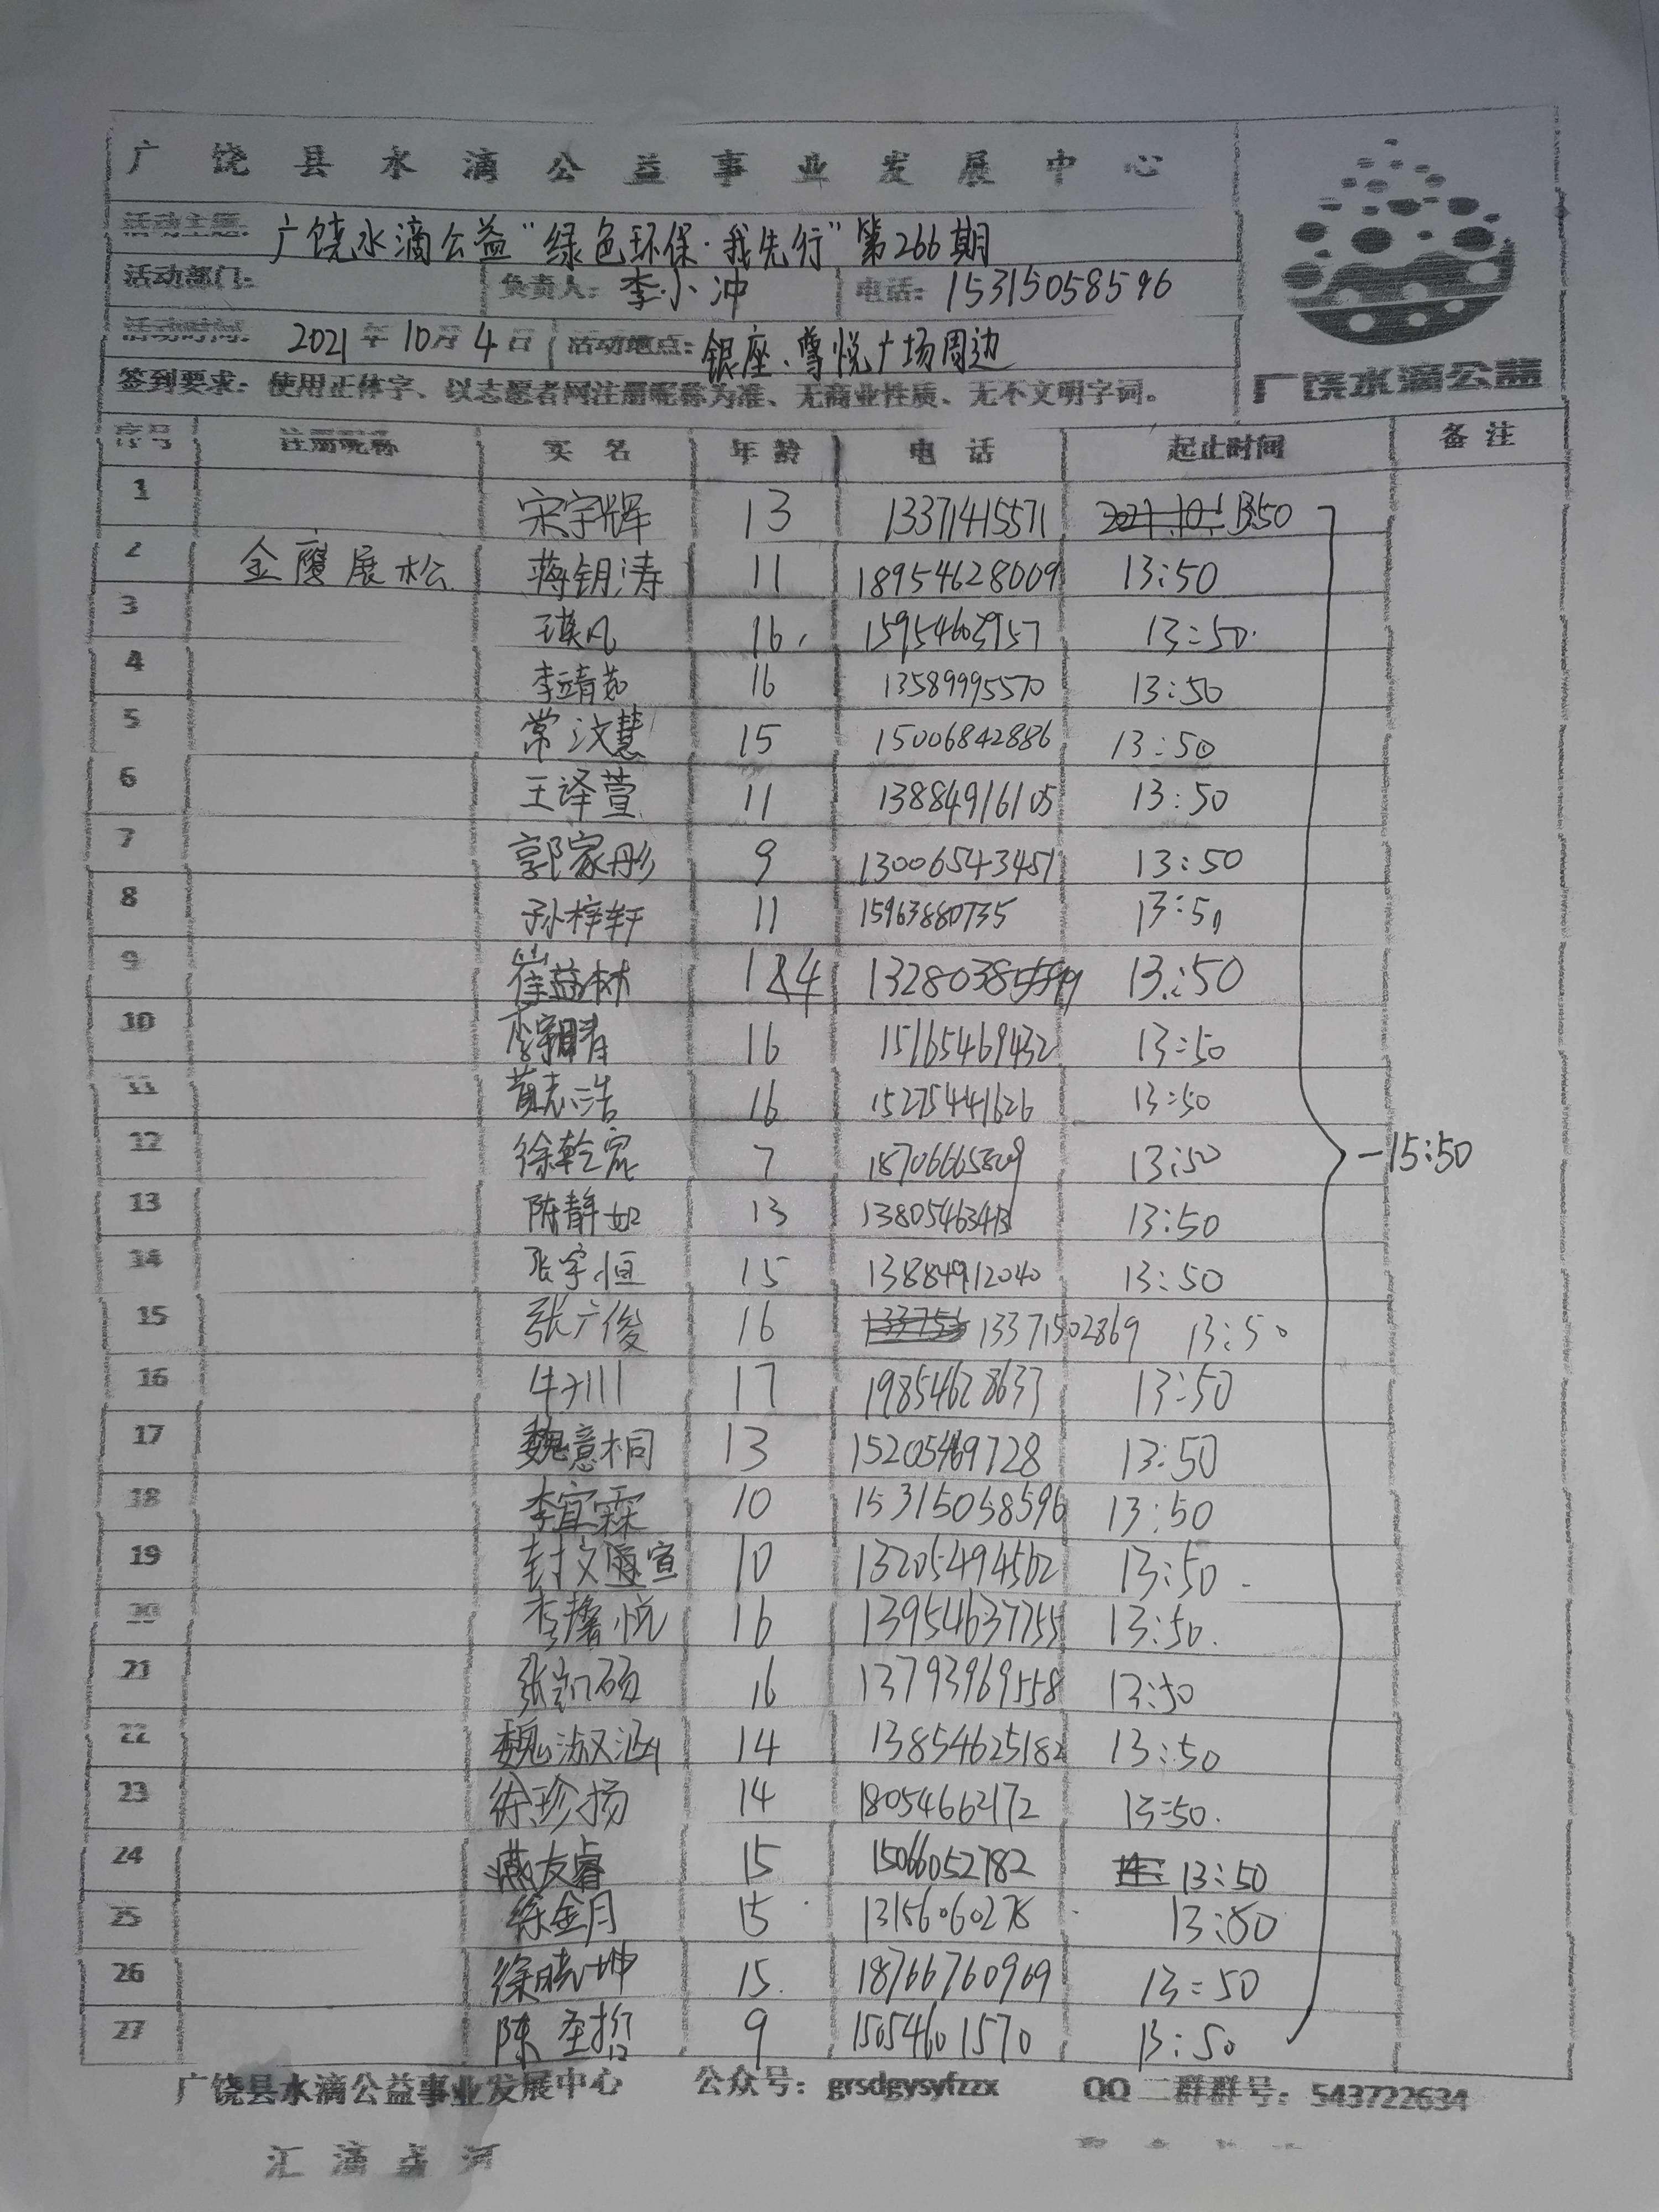 广饶县水滴公益事业发展中心
活动主题: 广饶水滴公益“绿色环保·我先行”第266期
活动部门: 负责人: 李小冲 电话: 15315058596
活动时间: 2021年10月4日 活动地点: 银座、尊悦广场周边
签到要求: 使用正体字、以志愿者网注册昵称为准、无商业性质、无不文明字词。
广饶水滴公益
序号 注册昵称 实名 年龄 电话 起止时间 备注
1 宋宇辉 13 13371415571 13:50
2 金鹰展松 蒋钥涛 11 18954628009 13:50
3 王琪凡 16 15954603957 13:50
4 李靖茹 16 13589995570 13:50
5 常汶慧 15 15006842886 13:50
6 王译萱 11 13884916105 13:50
7 郭家彤 9 13006543451 13:50
8 孙梓轩 11 15963880735 13:50
9 崔益林 14 13:50
10 16 15165469432 13:50
11 黄志浩 16 15275441626 13:50
12 徐乾宸 7 18706665809 13:50
-15:50
13 陈静如 13 13:50
14 张宇恒 15 13884912040 13:50
15 张广俊 16 13371502869 13:50
16 牛子川 17 19854628637 13:50
17 魏意桐 13 15205469728 13:50
18 李宜霖 10 15315058596 13:50
19 封文通宣 10 13205494562 13:50
20 李馨悦 16 13954637755 13:50
21 张凯硕 16 13793969558 13:50
22 魏淑涵 14 13854625182 13:50
23 徐珍扬 14 18054662172 13:50
24 燕友睿 15 15066052782 13:50
25 徐金月 15 13156060278 13:50
26 徐晓坤 15 18766760969 13:50
27 陈圣招 9 15054601570 13:50
广饶县水滴公益事业发展中心 公众号: grsdgysyfzzx QQ二群群号: 543722634
汇滴点河